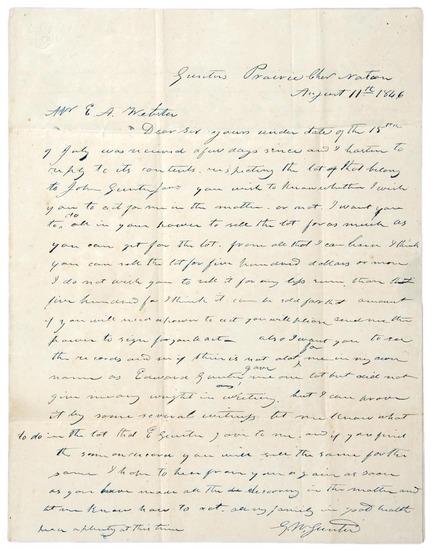 Gunters Prairie Cher Nation
August 11th 1846
Mr E. A. Webster
Dear Sir yours under date of the 15th
of July was received a few days since and I hasten to
reply to its contents. respecting the lot that belong
to John Gunter you wish to know whether I wish
you to act for me in the matter or not I want you
to do all in your power to sell the lot for as much as
you can get for the lot. from all that I can learn I think
you can sell the lot for five hundred dollars or more
I do not wish you to sell it for any less sum than
five hundred for I think it can be sold for that amount
if you will need a power to act you will please send me the
power to sign for you to act also I want you to see
the records and see if there is not a lot in my own
name as Edward Gunter gave me one lot but did not
give me any in writing, but I can prove
it by some several witness let me know what
to do in the lot that E Gunter gave to me. and if you find
the same on record you will sell the same for the
same I hope to hear from you again as soon
as you have made all the discovery in the matter and
let me know how to act. all my family in good health
peace a plenty at this time
G. W. Gunter